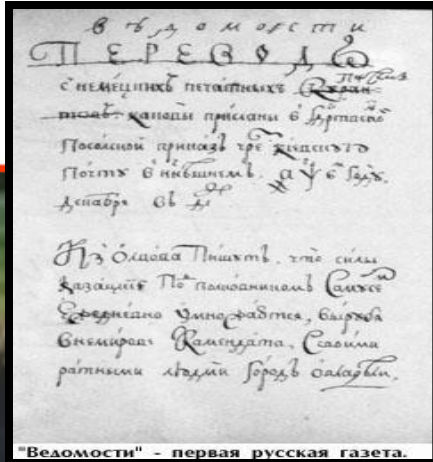 вѣдомости
ПЕРЕВОДЪ
с немецкихъ печатныхъ
каковы присланы в
Посолской приказъ чрезъ
Почту в нынѣшнемъ году,
декабря въ де
Из Олвова Пишутъ, что силы
казацкие По полковникомъ Самусе
умножаются, вырубя
внемирове Каменданта, Своими
ратными людми городъ овладѣли,
"Ведомости" - первая русская газета.